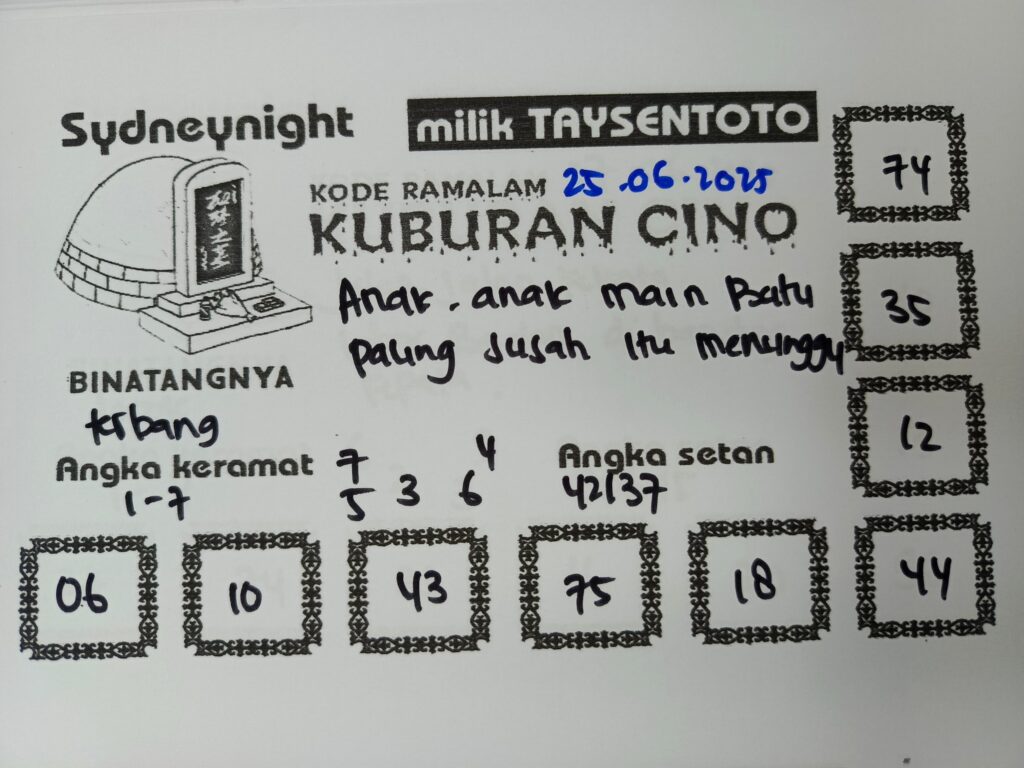 Sydneynight
milik TAYSENTOTO
KODE RAMALAM 25.06.2025
KUBURAN CINO
Anak. anak main Batu
paling susah itu menunggu
BINATANGNYA
terbang
Angka keramat
1-7
7 4
5 3 6
Angka setan
42/37
74
35
12
06 10 43 75 18 44